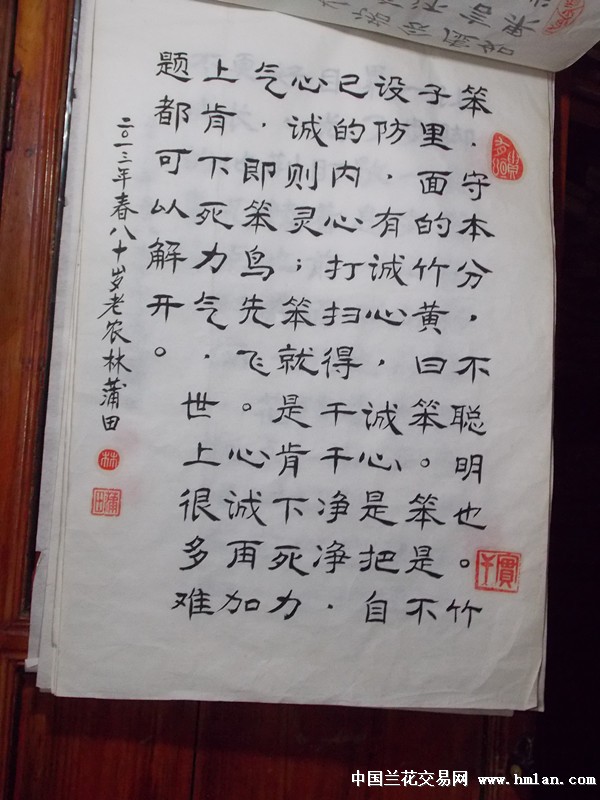 笨．守本分，不聪明也。竹
子里面的竹黄曰笨。笨是不
设防，有诚心，诚心是把自
己的内心打扫得干干净净．
心诚则灵；笨就是肯下死力
气．即笨鸟先飞。心诚再加
上肯下死力气．世上很多难
题都可以解开。
二〇一三年春八十岁老农林蒲田
林
蒲田
實干
中国兰花交易网 www.hmlan.com